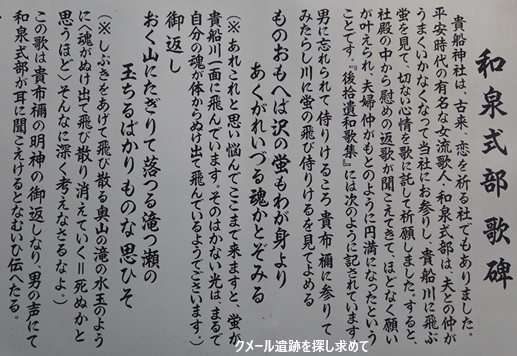 和泉式部 歌碑
貴船神社は、古来、恋を祈る社でもありました。
平安時代の有名な女流歌人・和泉式部は、夫との仲が
うまくいかなくなって当社にお参りし、貴船川に飛ぶ
蛍を見て、切ない心情を歌に託して祈願しました。すると、
社殿の中から慰めの返歌が聞こえてきて、ほどなく願い
が叶えられ、夫婦仲がもとのように円満になったという
ことです。『後拾遺和歌集』には次のように記されています。
男に忘れられて侍りけるころ貴布禰に参りて
みたらし川に蛍の飛び侍りけるを見てよめる
ものおもへば沢の蛍もわが身より
あくがれいづる魂かとぞみる
(※あれこれと思い悩んでここまで来ますと、蛍が
貴船川一面に飛んでいます。そのはかない光は、まるで
自分の魂が体からぬけ出て飛んでいるようでございます。)
御返し
おく山にたぎりて落つる滝つ瀬の
玉ちるばかりものな思ひそ
(※しぶきをあげて飛び散る奥山の滝の水玉のよう
に〈魂がぬけ出て飛び散り消えていく=死ぬかと
思うほど〉そんなに深く考えなさるなよ。)
この歌は貴布禰の明神の御返しなり、男の声にて
和泉式部が耳に聞こえけるとなむいひ伝へたる。
クメール遺跡を探し求めて